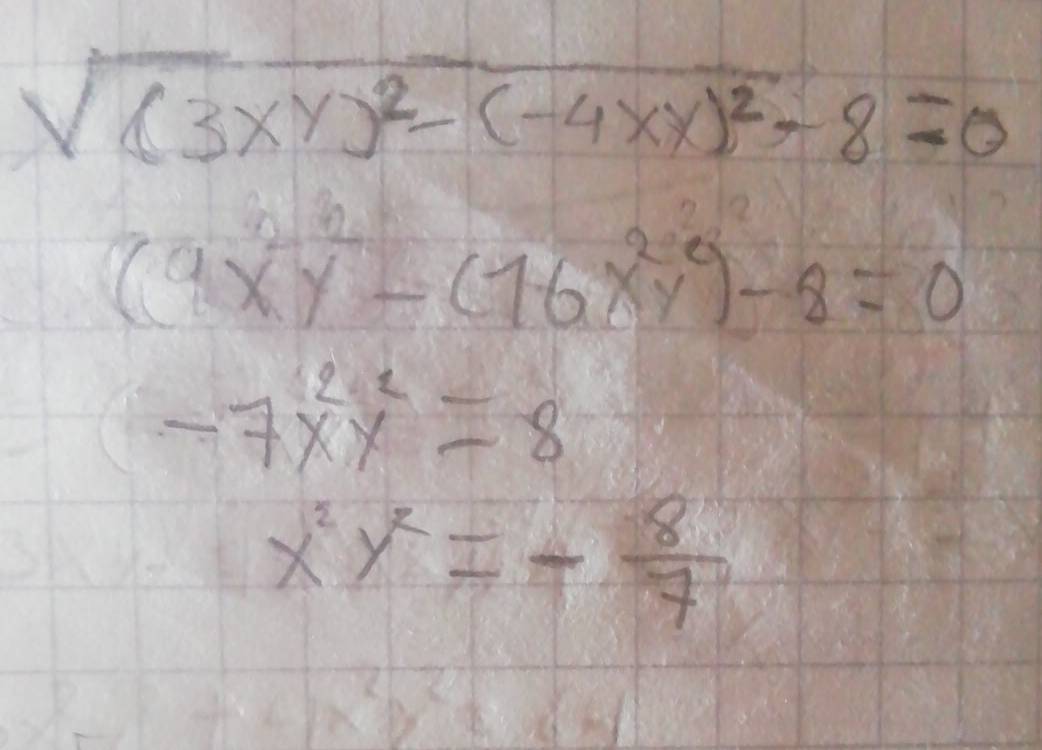 √((3XY)² - (-4XY)² - 8 = 0
(9X²Y² - (16X²Y²) - 8 = 0
-7X²Y² = 8
X²Y² = - 8/7